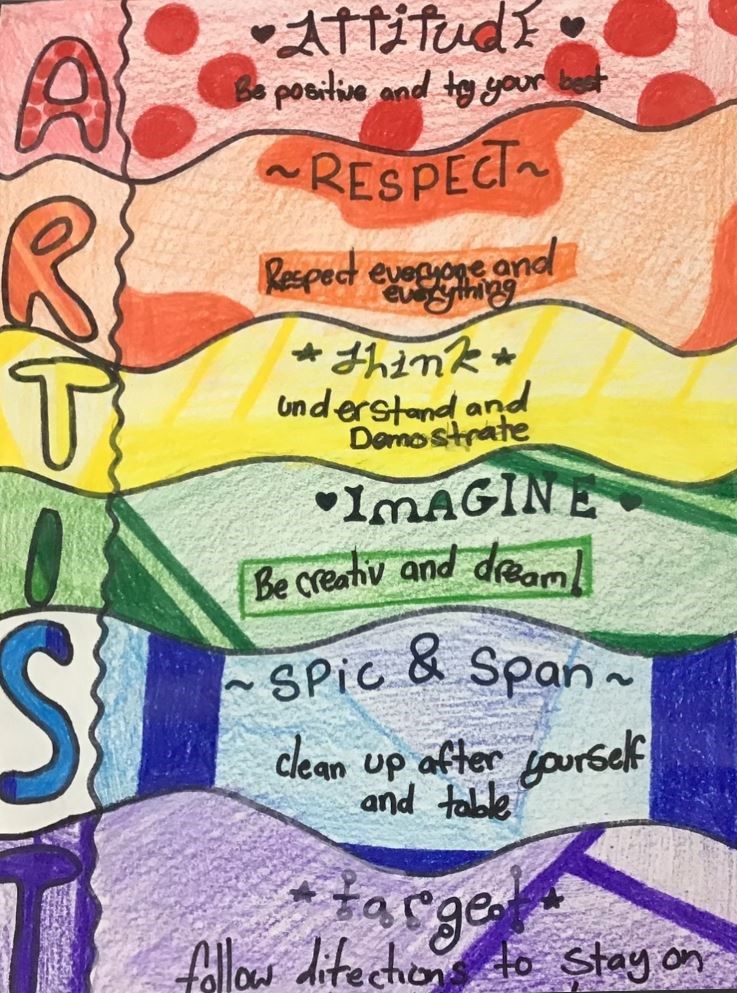 A
♥ AttitudE ♥
Be positive and try your best
R
~RESPECT~
Respect everyone and
everything
T
★ think ★
understand and
Demostrate
I
♥ ImAGINE ♥
Be creativ and dream!
S
~ SPic & Span ~
clean up after yourself
and table
T
★ target ★
follow directions to stay on